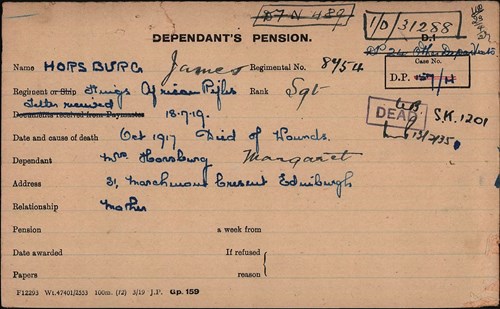 D7 N 489
1/0/31288
DEPENDANT'S PENSION.
D.1
Name HORSBURG James Regimental No. 8954
Case No.
D.P.
Regiment or Ship Kings African Rifles Rank Sgt
Letter received
Documents received from Paymaster 18.7.19.
DEAD S.K. 1201
13/2/35
Date and cause of death Oct 1917 Died of Wounds.
Dependant Mrs Horsburg Margaret
Address 31, Marchmont Cresent Edinburgh
Relationship Mother
Pension a week from
Date awarded If refused
Papers reason
F12293 Wt.47401/2533 100m. (12) 3/19 J.P. Gp. 159